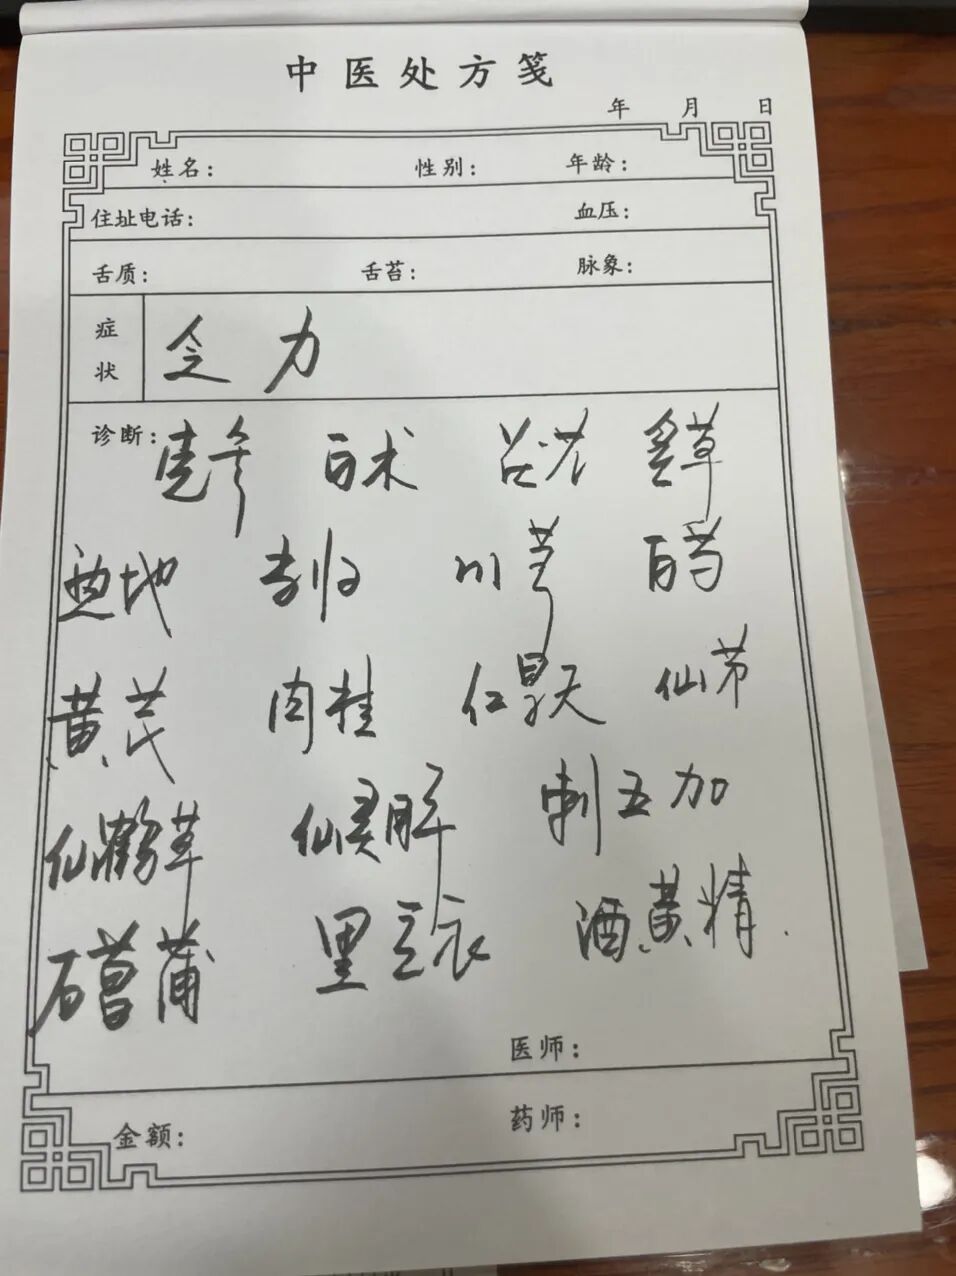 中医处方笺
年 月 日
姓名: 性别: 年龄:
住址电话: 血压:
舌质: 舌苔: 脉象:
症状 乏力
诊断: 党参 白术 茯苓 炙草
熟地 当归 川芎 白芍
黄芪 肉桂 红景天 仙茅
仙鹤草 仙灵脾 刺五加
石菖蒲 黑豆衣 酒黄精
医师:
金额: 药师: